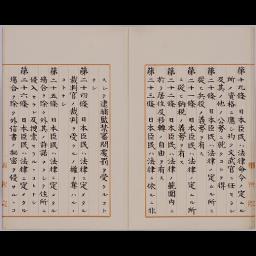 第十九條 日本臣民ハ法律命令ノ定ムル
所ノ資格ニ應シ均ク文武官ニ任セラレ
及其ノ他ノ公務ニ就クコトヲ得
第二十條 日本臣民ハ法律ノ定ムル所ニ
從ヒ兵役ノ義務ヲ有ス
第二十一條 日本臣民ハ法律ノ定ムル所ニ
從ヒ納税ノ義務ヲ有ス
第二十二條 日本臣民ハ法律ノ範圍内ニ
於テ居住及移轉ノ自由ヲ有ス
第二十三條 日本臣民ハ法律ニ依ルニ非
スシテ逮捕監禁審問處罰ヲ受クルコト
ナシ
第二十四條 日本臣民ハ法律ニ定メタル
裁判官ノ裁判ヲ受クルノ權ヲ奪ハル丶
コトナシ
第二十五條 日本臣民ハ法律ニ定メタル
場合ヲ除ク外其ノ許諾ナクシテ住所ニ
侵入セラレ及搜索セラル丶コトナシ
第二十六條 日本臣民ハ法律ニ定メタル
場合ヲ除ク外信書ノ秘密ヲ侵サル丶コ